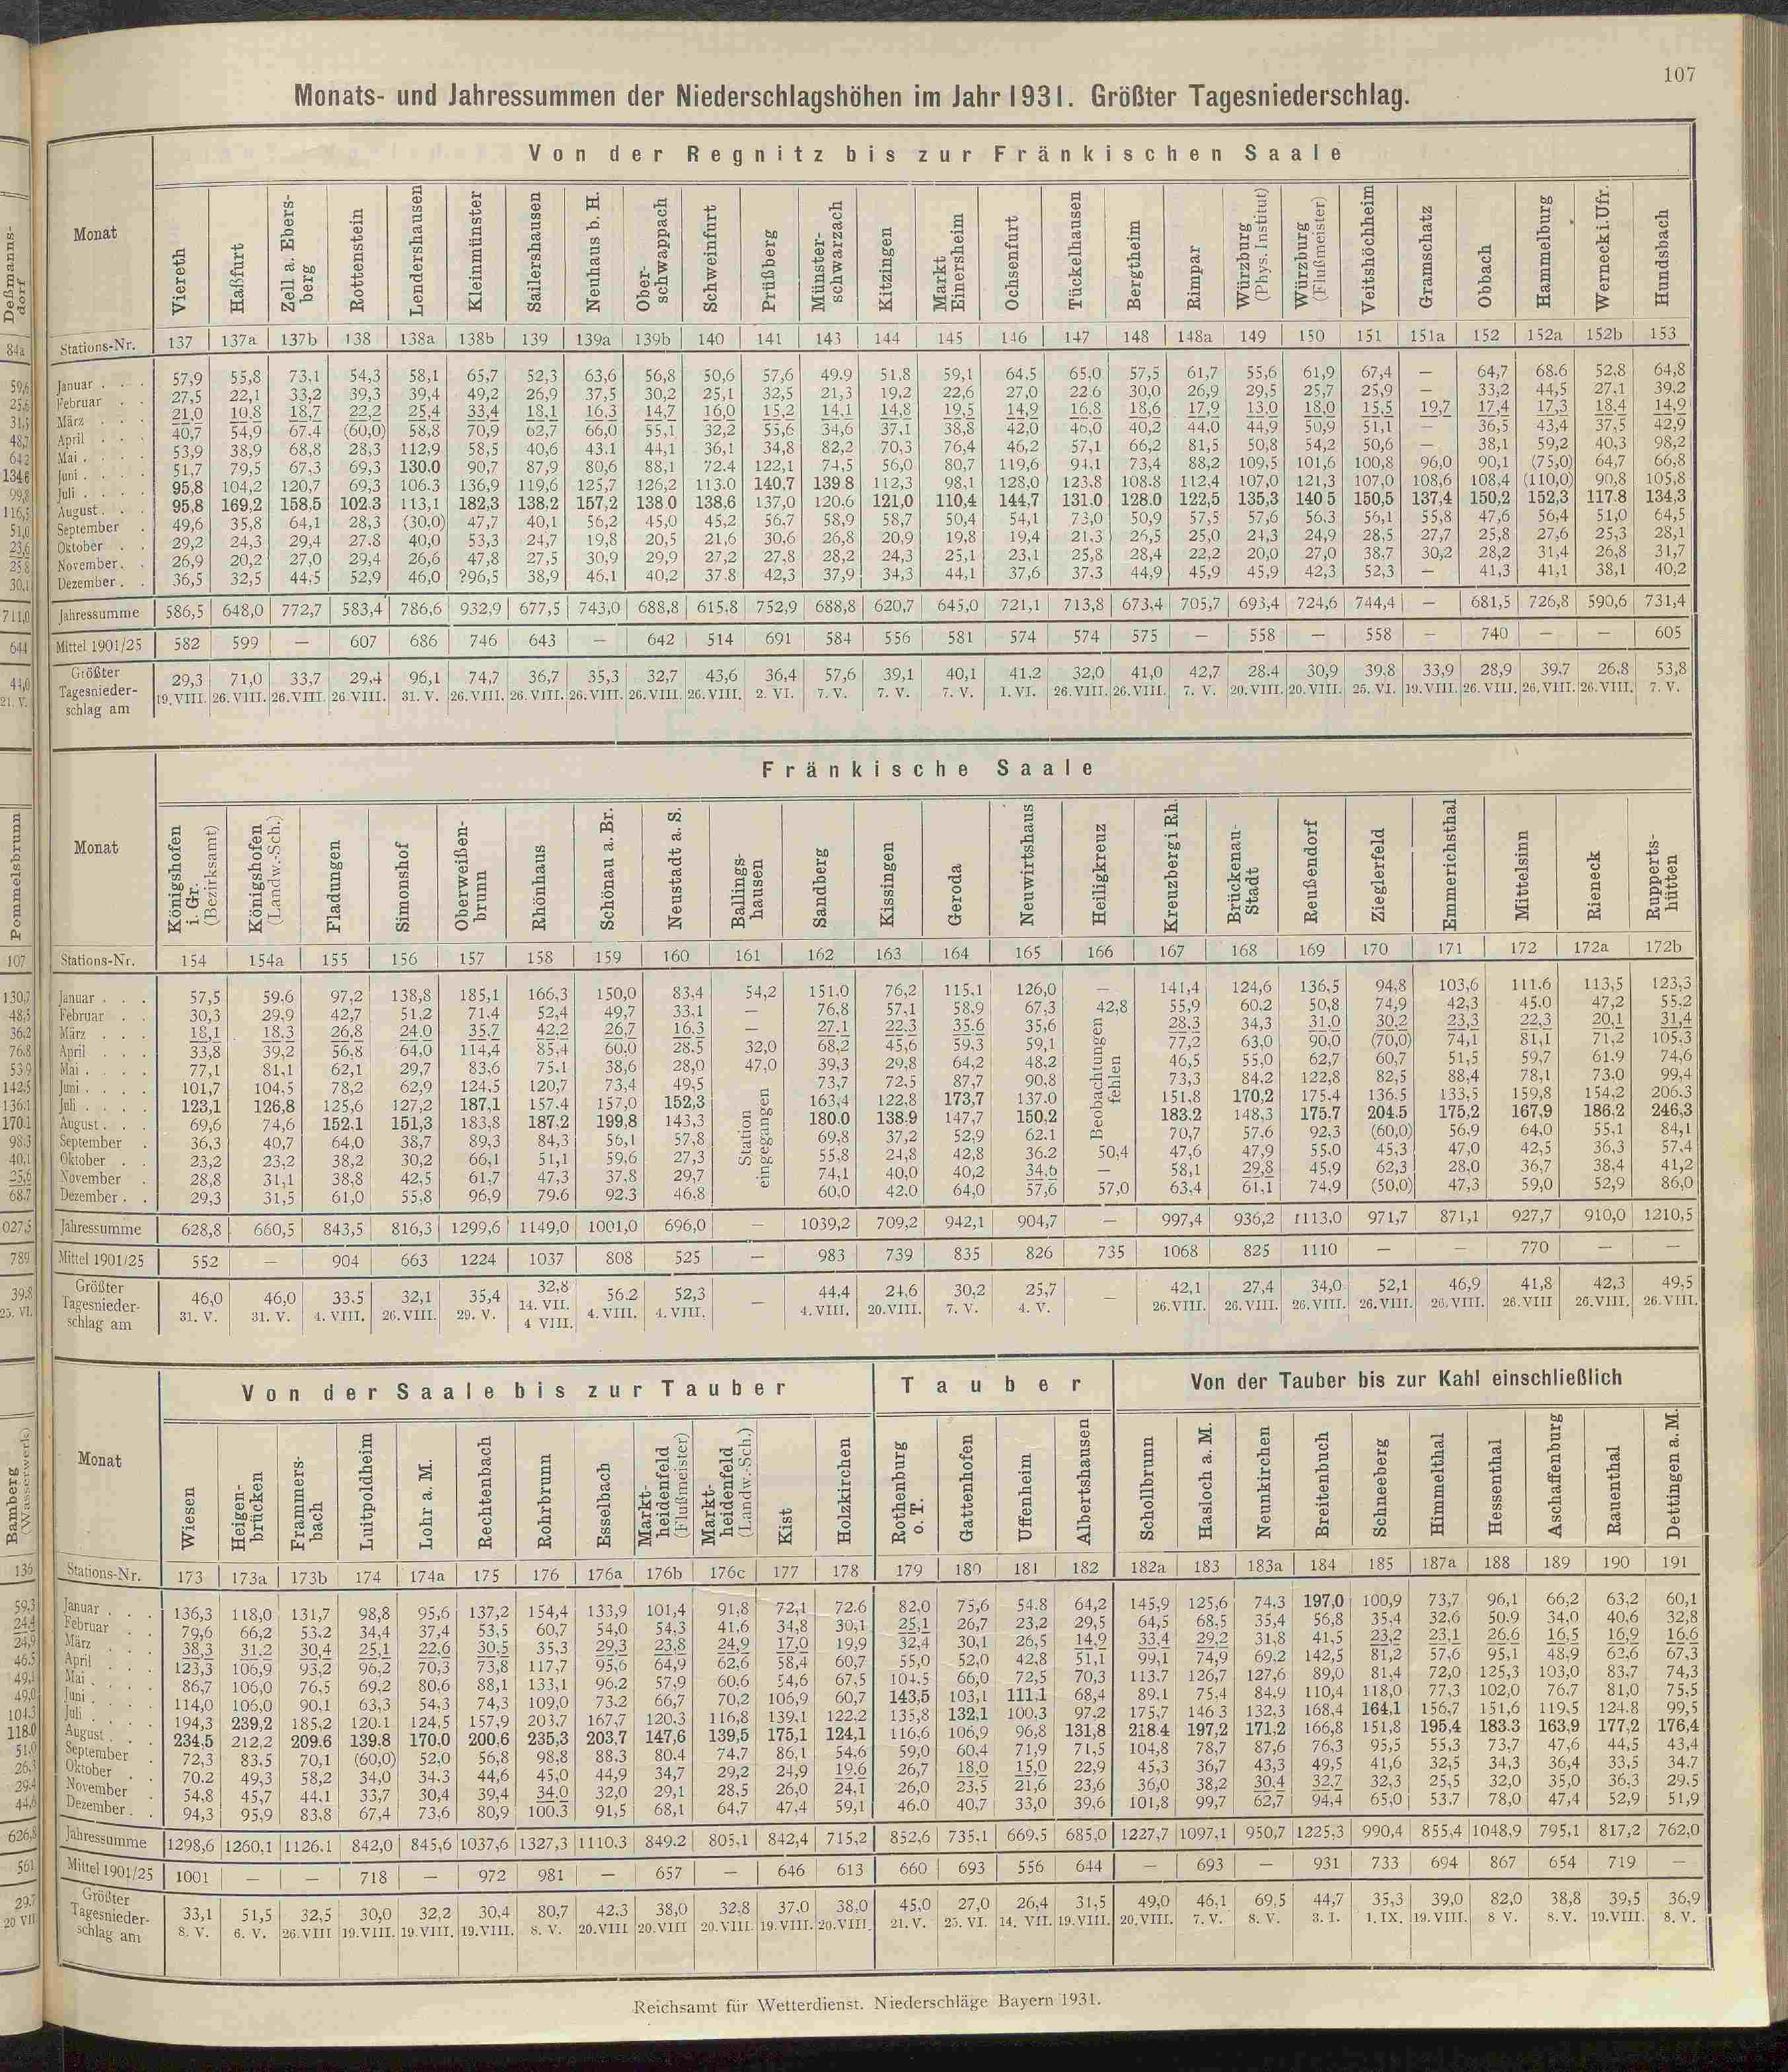 107
Monats- und Jahressummen der Niederschlagshöhen im Jahr 1931. Größter Tagesniederschlag.
Von der Regnitz bis zur Fränkischen Saale
Monat Viereth Haßfurt Zell a. Ebersberg Rottenstein Lendershausen Kleinmünster Sailershausen Neuhaus b. H. Ober-schwappach Schweinfurt Prüßberg Münster-schwarzach Kitzingen Markt Einersheim Ochsenfurt Tückelhausen Bergtheim Rimpar Würzburg (Phys. Institut) Würzburg (Flußmeister) Veitshöchheim Gramschatz Obbach Hammelburg Werneck i. Ufr. Hundsbach
Stations-Nr. 137 137a 137b 138 138a 138b 139 139a 139b 140 141 143 144 145 146 147 148 148a 149 150 151 151a 152 152a 152b 153
Januar . . . 57,9 55,8 73,1 54,3 58,1 65,7 52,3 63,6 56,8 50,6 57,6 49.9 51,8 59,1 64,5 65,0 57,5 61,7 55,6 61,9 67,4 — 64,7 68.6 52,8 64,8
Februar . . 27,5 22,1 33,2 39,3 39,4 49,2 26,9 37,5 30,2 25,1 32,5 21,3 19,2 22,6 27,0 22.6 30,0 26,9 29,5 25,7 25,9 — 33,2 44,5 27.1 39.2
März . . . 21,0 10,8 18,7 22,2 25,4 33,4 18,1 16,3 14,7 16,0 15,2 14,1 14,8 19,5 14,9 16,8 18,6 17,9 13,0 18,0 15,5 19,7 17,4 17,3 18.4 14,9
April . . . 40,7 54,9 67.4 (60,0) 58,8 70,9 62,7 66,0 55,1 32,2 55,6 34,6 37.1 38,8 42,0 40,0 40,2 44.0 44,9 50,9 51,1 — 36,5 43,4 37,5 42,9
Mai . . . . 53,9 38,9 68,8 28,3 112,9 58,5 40,6 43.1 44,1 36,1 34,8 82,2 70,3 76,4 46,2 57,1 66,2 81,5 50,8 54,2 50,6 — 38,1 59,2 40,3 98,2
Juni . . . . 51,7 79,5 67,3 69,3 130.0 90,7 87,9 80,6 88,1 72.4 122,1 74,5 56,0 80,7 119,6 94.1 73,4 88,2 109,5 101,6 100,8 96,0 90,1 (75,0) 64,7 66,8
Juli . . . . 95,8 104,2 120,7 69,3 106.3 136,9 119,6 125,7 126,2 113.0 140,7 139 8 112,3 98,1 128,0 123.8 108.8 112,4 107,0 121,3 107,0 108,6 108,4 (110,0) 90,8 105,8
August . . . 95.8 169,2 158,5 102.3 113,1 182,3 138,2 157,2 138 0 138,6 137,0 120.6 121,0 110,4 144,7 131.0 128.0 122,5 135,3 140 5 150,5 137,4 150,2 152,3 117.8 134,3
September . 49,6 35,8 64,1 28,3 (30,0) 47,7 40,1 56,2 45,0 45,2 56.7 58,9 58,7 50,4 54,1 73,0 50,9 57,5 57,6 56.3 56,1 55,8 47,6 56,4 51,0 64,5
Oktober . . 29,2 24,3 29,4 27.8 40,0 53,3 24,7 19,8 20,5 21,6 30,6 26,8 20,9 19,8 19,4 21.3 26,5 25,0 24,3 24,9 28,5 27,7 25,8 27,6 25,3 28,1
November. . 26,9 20,2 27,0 29,4 26,6 47,8 27,5 30,9 29,9 27,2 27,8 28,2 24,3 25,1 23.1 25,8 28,4 22,2 20,0 27,0 38.7 30,2 28,2 31,4 26,8 31,7
Dezember . . 36,5 32,5 44,5 52,9 46,0 ?96,5 38,9 46.1 40,2 37.8 42,3 37,9 34,3 44,1 37,6 37.3 44,9 45,9 45,9 42,3 52,3 — 41,3 41,1 38,1 40,2
Jahressumme 586,5 648,0 772,7 583,4 786,6 932,9 677,5 743,0 688,8 615,8 752,9 688,8 620,7 645,0 721,1 713,8 673,4 705,7 693,4 724,6 744,4 — 681,5 726,8 590,6 731,4
Mittel 1901/25 582 599 — 607 686 746 643 — 642 514 691 584 556 581 574 574 575 — 558 — 558 — 740 — — 605
Größter Tagesnieder-schlag am 29,3 71,0 33,7 29,4 96,1 74,7 36,7 35,3 32,7 43,6 36,4 57,6 39,1 40,1 41.2 32,0 41,0 42,7 28.4 30,9 39.8 33,9 28,9 39.7 26.8 53,8
19. VIII. 26. VIII. 26. VIII. 26. VIII. 31. V. 26. VIII. 26. VIII. 26. VIII. 26. VIII. 26. VIII. 2. VI. 7. V. 7. V. 7. V. 1. VI. 26. VIII. 26. VIII. 7. V. 20. VIII. 20. VIII. 25. VI. 19. VIII. 26. VIII. 26. VIII. 26. VIII. 7. V.
Fränkische Saale
Monat Königshofen i. Gr. (Bezirksamt) Königshofen (Landw.-Sch.) Fladungen Simonshof Oberweißen-brunn Rhönhaus Schönau a. Br. Neustadt a. S. Ballings-hausen Sandberg Kissingen Geroda Neuwirtshaus Heiligkreuz Kreuzberg i Rh. Brückenau-Stadt Reußendorf Zieglerfeld Emmerichsthal Mittelsinn Rieneck Rupperts-hütten
Stations-Nr. 154 154a 155 156 157 158 159 160 161 162 163 164 165 166 167 168 169 170 171 172 172a 172b
Januar . . . 57,5 59.6 97,2 138,8 185,1 166,3 150,0 83.4 54,2 151,0 76,2 115.1 126,0 — 141,4 124,6 136,5 94,8 103,6 111.6 113,5 123,3
Februar . . 30,3 29,9 42,7 51,2 71.4 52,4 49,7 33.1 — 76,8 57,1 58.9 67,3 42,8 55,9 60.2 50,8 74,9 42,3 45.0 47,2 55.2
März . . . 18,1 18.3 26.8 24.0 35,7 42.2 26,7 16.3 — 27.1 22.3 35.6 35,6 Beobachtungen fehlen 28.3 34,3 31.0 30,2 23,3 22,3 20,1 31,4
April . . . 33,8 39,2 56,8 64,0 114,4 85,4 60.0 28.5 32,0 68,2 45,6 59.3 59,1 77,2 63,0 90,0 (70,0) 74,1 81,1 71,2 105.3
Mai . . . . 77,1 81,1 62,1 29,7 83,6 75.1 38,6 28,0 47,0 39,3 29,8 64,2 48,2 46,5 55,0 62,7 60,7 51,5 59,7 61.9 74,6
Juni . . . . 101,7 104,5 78,2 62,9 124,5 120,7 73,4 49,5 Station eingegangen 73,7 72,5 87,7 90,8 73,3 84.2 122,8 82,5 88,4 78,1 73.0 99,4
Juli . . . . 123,1 126,8 125,6 127,2 187,1 157.4 157,0 152,3 163,4 122,8 173,7 137.0 151,8 170,2 175.4 136,5 133,5 159,8 154,2 206.3
August . . . 69,6 74,6 152.1 151,3 183,8 187.2 199,8 143,3 180.0 138.9 147,7 150,2 183.2 148,3 175.7 204.5 175,2 167,9 186,2 246,3
September . 36,3 40,7 64,0 38,7 89,3 84,3 56,1 57,8 69,8 37,2 52,9 62.1 70,7 57,6 92,3 (60,0) 56,9 64,0 55,1 84,1
Oktober . . 23,2 23,2 38,2 30,2 66,1 51,1 59,6 27,3 55.8 24,8 42,8 36.2 50,4 47,6 47,9 55.0 45,3 47,0 42,5 36,3 57.4
November . 28,8 31,1 38,8 42,5 61,7 47,3 37,8 29,7 74,1 40,0 40,2 34,6 — 58,1 29,8 45,9 62,3 28,0 36,7 38,4 41,2
Dezember . . 29,3 31,5 61,0 55,8 96,9 79.6 92.3 46,8 60,0 42.0 64,0 57,6 57,0 63,4 61,1 74,9 (50,0) 47,3 59,0 52,9 86,0
Jahressumme 628,8 660,5 843,5 816,3 1299,6 1149,0 1001,0 696,0 — 1039,2 709,2 942,1 904,7 — 997,4 936,2 1113,0 971,7 871,1 927,7 910,0 1210,5
Mittel 1901/25 552 — 904 663 1224 1037 808 525 — 983 739 835 826 735 1068 825 1110 — — 770 — —
Größter Tagesnieder-schlag am 46,0 46,0 33.5 32,1 35,4 32,8 56.2 52,3 — 44.4 24,6 30,2 25,7 — 42,1 27,4 34,0 52,1 46,9 41,8 42,3 49,5
31. V. 31. V. 4. VIII. 26. VIII. 29. V. 14. VII. 4 VIII. 4. VIII. 4. VIII. 4. VIII. 20. VIII. 7. V. 4. V. 26. VIII. 26. VIII. 26. VIII. 26. VIII. 26. VIII. 26. VIII 26. VIII. 26. VIII.
Von der Saale bis zur Tauber Tauber Von der Tauber bis zur Kahl einschließlich
Monat Wiesen Heigen-brücken Frammers-bach Luitpoldheim Lohr a. M. Rechtenbach Rohrbrunn Esselbach Markt-heidenfeld (Flußmeister) Markt-heidenfeld (Landw.-Sch.) Kist Holzkirchen Rothenburg o. T. Gattenhofen Uffenheim Albertshausen Schollbrunn Hasloch a. M. Neunkirchen Breitenbuch Schneeberg Himmelthal Hessenthal Aschaffenburg Rauenthal Dettingen a. M.
Stations-Nr. 173 173a 173b 174 174a 175 176 176a 176b 176c 177 178 179 180 181 182 182a 183 183a 184 185 187a 188 189 190 191
Januar . . . 136,3 118,0 131,7 98,8 95,6 137,2 154,4 133,9 101,4 91,8 72,1 72.6 82.0 75,6 54.8 64,2 145,9 125,6 74,3 197,0 100,9 73,7 96,1 66,2 63,2 60,1
Februar . . 79,6 66,2 53.2 34,4 37,4 53,5 60,7 54,0 54,3 41.6 34,8 30,1 25,1 26,7 23,2 29,5 64,5 68.5 35,4 56,8 35.4 32,6 50.9 34,0 40,6 32,8
März . . . 38,3 31,2 30,4 25,1 22,6 30,5 35,3 29,3 23,8 24,9 17,0 19,9 32,4 30,1 26,5 14,9 33,4 29,2 31,8 41,5 23,2 23,1 26,6 16,5 16,9 16,6
April . . . 123,3 106,9 93,2 96,2 70,3 73,8 117,7 95,6 64,9 62,6 58,4 60,7 55,0 52,0 42,8 51,1 99,1 74,9 69.2 142,5 81,2 57,6 95,1 48,9 62,6 67,3
Mai . . . . 86,7 106,0 76,5 69,2 80,6 88,1 133,1 96,2 57,9 60,6 54,6 67.5 104,5 66,0 72,5 70,3 113.7 126,7 127,6 89,0 81,4 72,0 125,3 103,0 83,7 74,3
Juni . . . . 114,0 106,0 90,1 63,3 54,3 74,3 109,0 73.2 66,7 70,2 106,9 60,7 143,5 103,1 111,1 68,4 89,1 75,4 84,9 110,4 118,0 77,3 102,0 76.7 81,0 75,5
Juli . . . . 194,3 239,2 185,2 120.1 124,5 157,9 203,7 167,7 120,3 116,8 139.1 122.2 135,8 132,1 100,3 97.2 175,7 146 3 132,3 168,4 164,1 156,7 151,6 119,5 124.8 99,5
August . . . 234,5 212,2 209.6 139.8 170,0 200,6 235,3 203,7 147,6 139,5 175,1 124,1 116,6 106,9 96,8 131,8 218.4 197,2 171,2 166,8 151,8 195,4 183.3 163,9 177,2 176,4
September . 72,3 83.5 70,1 (60,0) 52,0 56,8 98,8 88.3 80.4 74,7 86,1 54,6 59,0 60,4 71,9 71,5 104,8 78,7 87,6 76,3 95,5 55,3 73,7 47,6 44,5 43,4
Oktober . . 70.2 49,3 58,2 34,0 34.3 44,6 45,0 44,9 34,7 29,2 24,9 19.6 26,7 18,0 15,0 22,9 45,3 36,7 43,3 49,5 41,6 32,5 34,3 36,4 33,5 34.7
November . 54,8 45,7 44.1 33,7 30,4 39,4 34,0 32,0 29,1 28,5 26,0 24,1 26,0 23,5 21,6 23,6 36,0 38,2 30,4 32,7 32,3 25,5 32,0 35,0 36,3 29,5
Dezember . . 94,3 95,9 83,8 67,4 73,6 80,9 100.3 91,5 68,1 64,7 47,4 59,1 46.0 40,7 33,0 39,6 101,8 99,7 62,7 94,4 65,0 53,7 78,0 47,4 52,9 51,9
Jahressumme 1298,6 1260,1 1126,1 842,0 845,6 1037,6 1327,3 1110.3 849.2 805,1 842,4 715,2 852,6 735,1 669,5 685,0 1227,7 1097,1 950,7 1225,3 990,4 855,4 1048,9 795,1 817,2 762,0
Mittel 1901/25 1001 — — 718 — 972 981 — 657 — 646 613 660 693 556 644 — 693 — 931 733 694 867 654 719 —
Größter Tagesnieder-schlag am 33,1 51,5 32,5 30,0 32,2 30,4 80,7 42.3 38,0 32,8 37.0 38,0 45,0 27,0 26,4 31,5 49,0 46.1 69,5 44,7 35,3 39,0 82,0 38,8 39,5 36,9
8. V. 6. V. 26. VIII 19. VIII. 19. VIII. 19. VIII. 8. V. 20. VIII 20. VIII 20. VIII. 19. VIII. 20. VIII. 21. V. 25. VI. 14. VII. 19. VIII. 20. VIII. 7. V. 8. V. 3. I. 1. IX. 19. VIII. 8 V. 8. V. 19. VIII. 8. V.
Reichsamt für Wetterdienst. Niederschläge Bayern 1931.